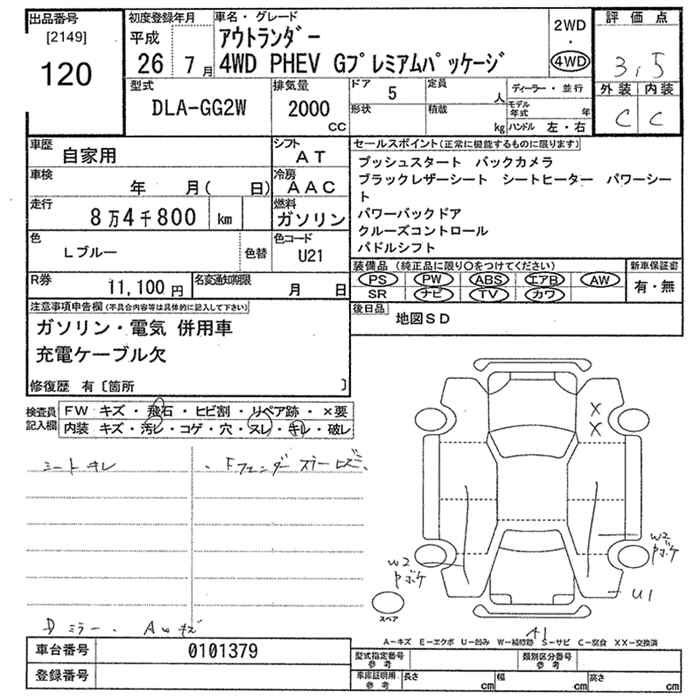 出品番号
[2149]
120
初度登録年月
平成
26 7月
車名・グレード
アウトランダー
4WD PHEV Gプレミアムパッケージ
2WD
・
4WD
評価点
3,5
外装 内装
C C
型式
DLA-GG2W
排気量
2000
CC
ドア 5
定員 人
ディーラー・並行
形状
積載 kg
モデル年式 年
ハンドル 左・右
車歴
自家用
シフト
AT
車検
年 月( 日)
冷房
AAC
走行
8万4千800 km
燃料
ガソリン
色
Lブルー
色替
色コード
U21
R券
11,100円
名変通知期限
月 日
セールスポイント(正常に機能するものに限ります)
プッシュスタート バックカメラ
ブラックレザーシート シートヒーター パワーシー
ト
パワーバックドア
クルーズコントロール
パドルシフト
装備品 (純正品に限り○をつけてください)
PS PW ABS エアB AW
SR ナビ TV カワ
新車保証書
有・無
後日品
地図SD
注意事項申告欄(不具合内容等は具体的に記入して下さい)
ガソリン・電気 併用車
充電ケーブル欠
修復歴 有〔箇所 〕
検査員
記入欄
FW キズ・飛石・ヒビ割・リペア跡・×要
内装 キズ・汚レ・コゲ・穴・スレ・キレ・破レ
シートキレ
Dミラー、AWキズ
X
X
W2
W2
U1
A1
スペア
A-キズ E-エクボ U-凹み W-補修跡 S-サビ C-腐食 XX-交換済
車台番号
0101379
登録番号
型式指定番号
参考
類別区分番号
参考
車庫証明用
参考
長さ cm
幅 cm
高さ cm